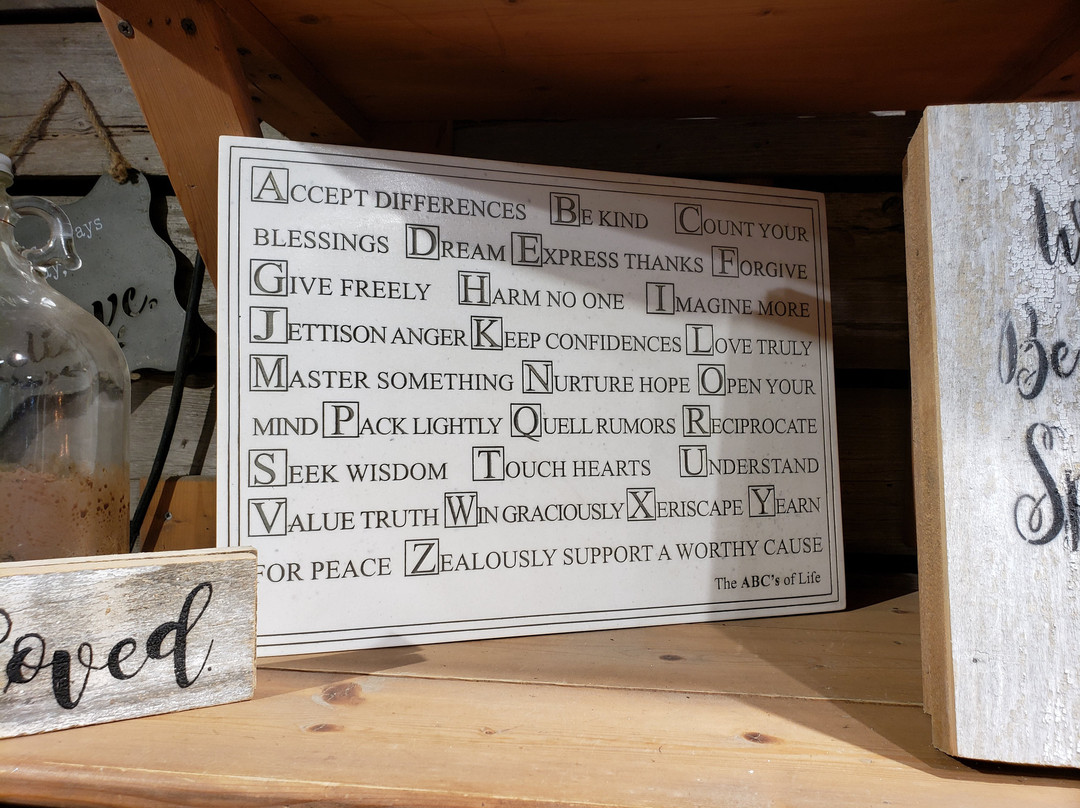 ACCEPT DIFFERENCES BE KIND COUNT YOUR
BLESSINGS DREAM EXPRESS THANKS FORGIVE
GIVE FREELY HARM NO ONE IMAGINE MORE
JETTISON ANGER KEEP CONFIDENCES LOVE TRULY
MASTER SOMETHING NURTURE HOPE OPEN YOUR
MIND PACK LIGHTLY QUELL RUMORS RECIPROCATE
SEEK WISDOM TOUCH HEARTS UNDERSTAND
VALUE TRUTH WIN GRACIOUSLY XERISCAPE YEARN
FOR PEACE ZEALOUSLY SUPPORT A WORTHY CAUSE
The ABC's of Life
oved.
Be